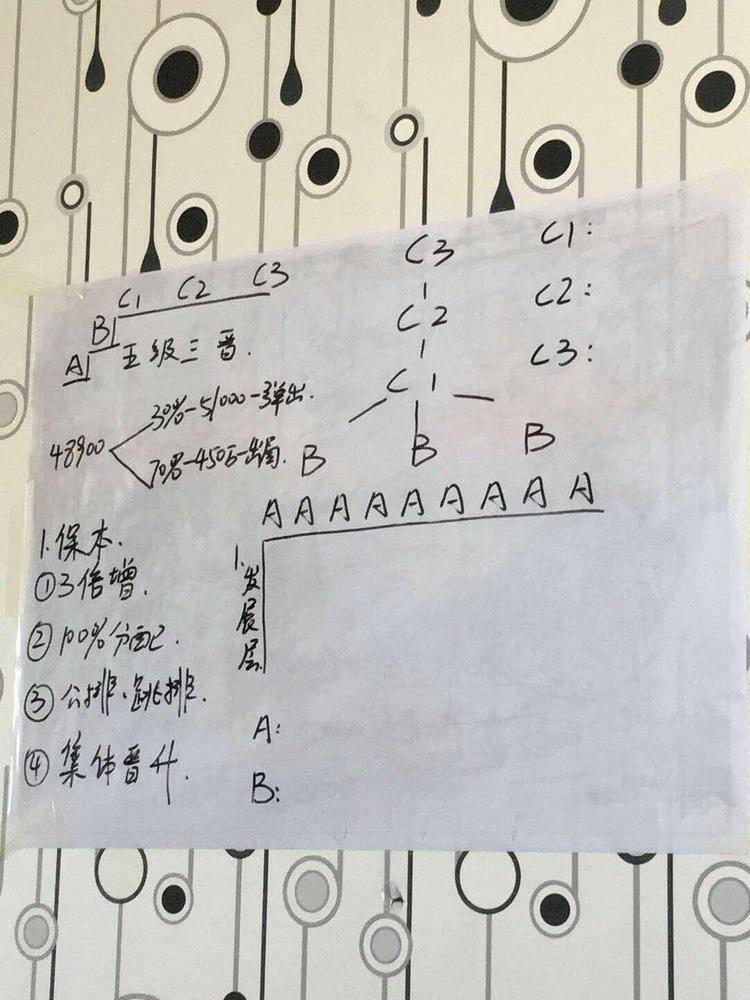 C1 C2 C3
B1
A1 五级三晋.
48900
30%-51000-弹出.
70%-450万-出局.
1.保本.
①3倍增.
②100%分配.
③公排、跳排.
④集体晋升.
C3
C2
C1
B B B
A A A A A A A A A
1.发展层
A:
B:
C1:
C2:
C3: